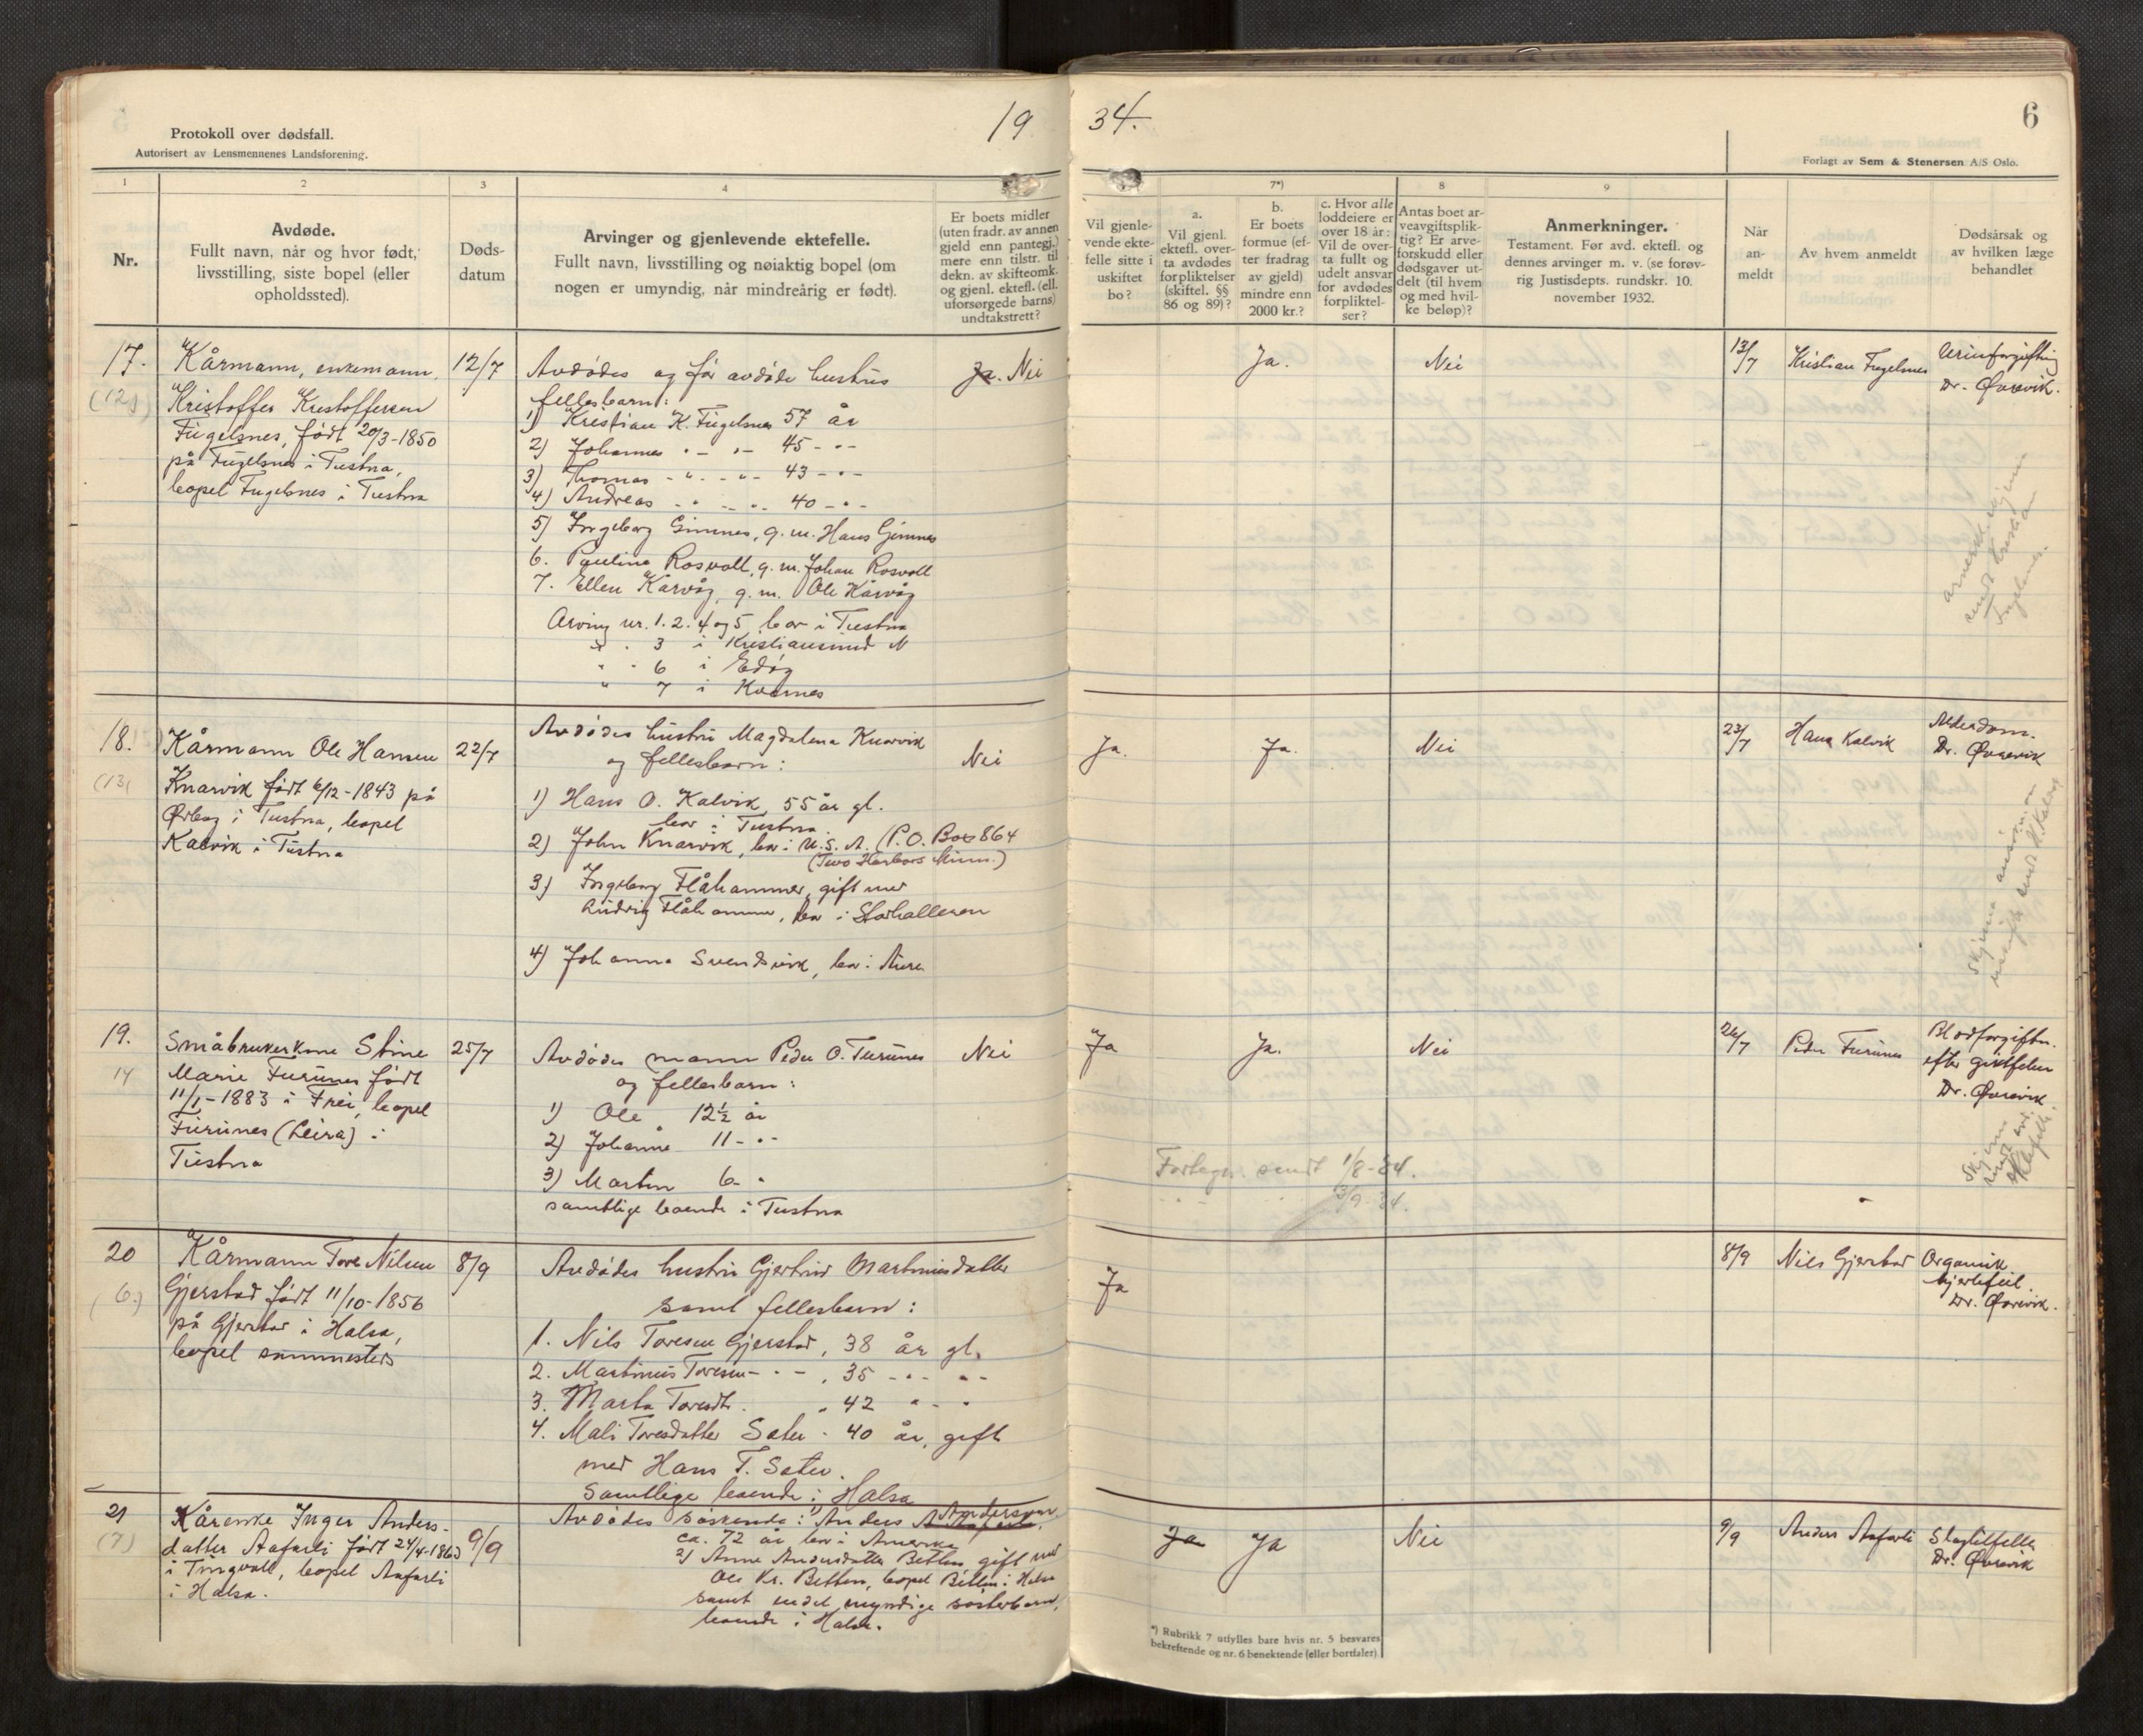 Protokoll over dødsfall.
Autorisert av Lensmennenes Landsforening.
19
34.
6
Forlagt av Sem & Stenersen A/S Oslo.
1
2
3
4
7*)
8
9
Nr.
Avdøde.
Fullt navn, når og hvor født,
livsstilling, siste bopel (eller
opholdssted).
Døds-
datum
Arvinger og gjenlevende ektefelle.
Fullt navn, livsstilling og nøiaktig bopel (om
nogen er umyndig, når mindreårig er født).
Er boets midler
(uten fradr. av annen
gjeld enn pantegj.)
mere enn tilstr. til
dekn. av skifteomk.
og gjenl. ektefl. (ell.
uforsørgede barns)
undtakstrett?
Vil gjenle-
vende ekte-
felle sitte i
uskiftet
bo?
a.
Vil gjenl.
ektefl. over-
ta avdødes
forpliktelser
(skiftel. §§
86 og 89)?
b.
Er boets
formue (ef-
ter fradrag
av gjeld)
mindre enn
2000 kr.?
c. Hvor alle
loddeiere er
over 18 år:
Vil de over-
ta fullt og
udelt ansvar
for avdødes
forpliktel-
ser?
Antas boet ar-
veavgiftsplik-
tig? Er arve-
forskudd eller
dødsgaver ut-
delt (til hvem
og med hvil-
ke beløp)?
Anmerkninger.
Testament. Før avd. ektefl. og
dennes arvinger m. v. (se forøv-
rig Justisdepts. rundskr. 10.
november 1932.
Når
an-
meldt
Av hvem anmeldt
Dødsårsak og
av hvilken læge
behandlet
17.
(12)
Kårmann, enkemann,
Kristoffer Kristoffersen
Fugelsnes, født 20/3-1850
på Fugelsnes i Tustna,
bopel Fugelsnes i Tustna
12/7
Avdødes og før avdøde hustrus
fellesbarn:
1) Kristian K. Fugelsnes 57 år
2) Johannes " - " - 45 - " -
3) Thomas - " - - " - 43 - " -
4) Andreas - " - " - 40 - " -
5) Ingeborg Gimnes, g. m. Hans Gimnes
6. Pauline Rosvoll, g. m. Johan Rosvoll
7. Ellen Kårvåg, g. m. Ole Kårvåg
Arving nr. 1. 2. 4 og 5 bor i Tustna
" " 3 i Kristiansund N
" " 6 i Edøy
" 7 i Kvernes
Ja. Nei
Ja.
Nei
13/7
Kristian Fugelsnes
Urinforgiftning
Dr. Øvrevik.
18.
(13)
Kårmann Ole Hansen
Knarvik født 6/12-1843 på
Ørbog i Tustna, bopel
Kalvik i Tustna
22/7
Avdødes hustru Magdalena Knarvik
og fellesbarn:
1) Hans O. Kalvik, 55 år gl.
bor i Tustna.
2) John Knarvik, bor i U.S.A. (P.O. Box 864
(Two Harbors Minn.)
3) Ingeborg Flåhammer, gift med
Ludvig Flåhammer, bor i Storhalleren
4) Johanna Svendsvik, bor i Aure
Nei
Ja.
Ja.
Nei
23/7
Hans Kalvik
Alderdom.
Dr. Øvrevik
19.
14
Småbrukerkone Stine
Marie Furunes født
11/1-1883 i Frei, bopel
Furunes (Leira) i
Tustna
25/7
Avdødes mann Peder O. Furunes
og fellesbarn:
1) Ole 12½ år
2) Johanne 11 - " -
3) Martin 6 - "
samtlige boende i Tustna
Nei
Ja
Ja.
Nei
Fortegn. sendt 1/8-34.
3/9 34.
26/7
Peder Furunes
Blodforgiftn.
efter giktfeber
Dr. Øvrevik
20
(6.)
Kårmann Tore Nilsen
Gjerstad født 11/10-1856
på Gjerstad i Halsa,
bopel sammesteds
8/9
Avdødes hustru Gjertrud Martinusdatter
samt fellesbarn:
1. Nils Toresen Gjerstad, 38 år gl.
2. Martinus Toresen - " - , 35 - " - " -
3. Marta Toresdtr. " 42 " - "
4. Mali Toresdatter Sæter - 40 år, gift
med Hans T. Sæter.
Samtlige boende i Halsa
Ja
8/9
Nils Gjerstad
Organisk
hjertefeil.
Dr. Øvrevik.
21
(7)
Kårenke Inger Anders-
datter Aafarli født 24/4-1863
i Tingvoll, bopel Aafarli
i Halsa.
9/9
Avdødes søskende: 1) Anders A Aafarli Anderson,
ca. 72 år bor i Amerika
2) Anne Andersdatter Betten gift med
Ole Kr. Betten, bopel Betten i Halsa
samt endel myndige søsterbarn,
boende i Halsa.
Ja
Ja
Nei
9/9
Anders Aafarli
Slagtilfelle
Dr. Øvrevik
*) Rubrikk 7 utfylles bare hvis nr. 5 besvares
bekreftende og nr. 6 benektende (eller bortfaler)